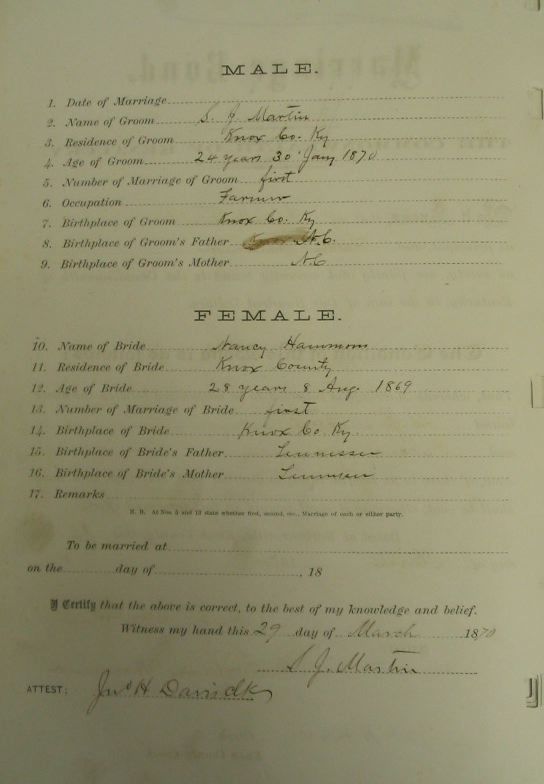 MALE.
1. Date of Marriage
2. Name of Groom S. J. Martin
3. Residence of Groom Knox Co. Ky
4. Age of Groom 24 years 30 Jany 1870
5. Number of Marriage of Groom first
6. Occupation Farmer
7. Birthplace of Groom Knox Co. Ky
8. Birthplace of Groom's Father N.C.
9. Birthplace of Groom's Mother N.C
FEMALE.
10. Name of Bride Nancy Hammons
11. Residence of Bride Knox County
12. Age of Bride 28 years 8 Aug. 1869
13. Number of Marriage of Bride first
14. Birthplace of Bride Knox Co. Ky.
15. Birthplace of Bride's Father
16. Birthplace of Bride's Mother
17. Remarks
N. B. At Nos. 5 and 13 state whether first, second, etc., Marriage of each or either party.
To be married at
on the day of , 18
I Certify that the above is correct, to the best of my knowledge and belief.
Witness my hand this 29 day of March 1870
S J. Martin
ATTEST: Jno H Davis